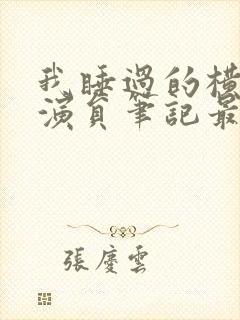 我睡過的橫
演員筆記最
張慶雲